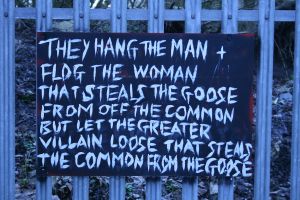 THEY HANG THE MAN +
FLOG THE WOMAN
THAT STEALS THE GOOSE
FROM OFF THE COMMON
BUT LET THE GREATER
VILLAIN LOOSE THAT STEMS
THE COMMON FROM THE GOOSE